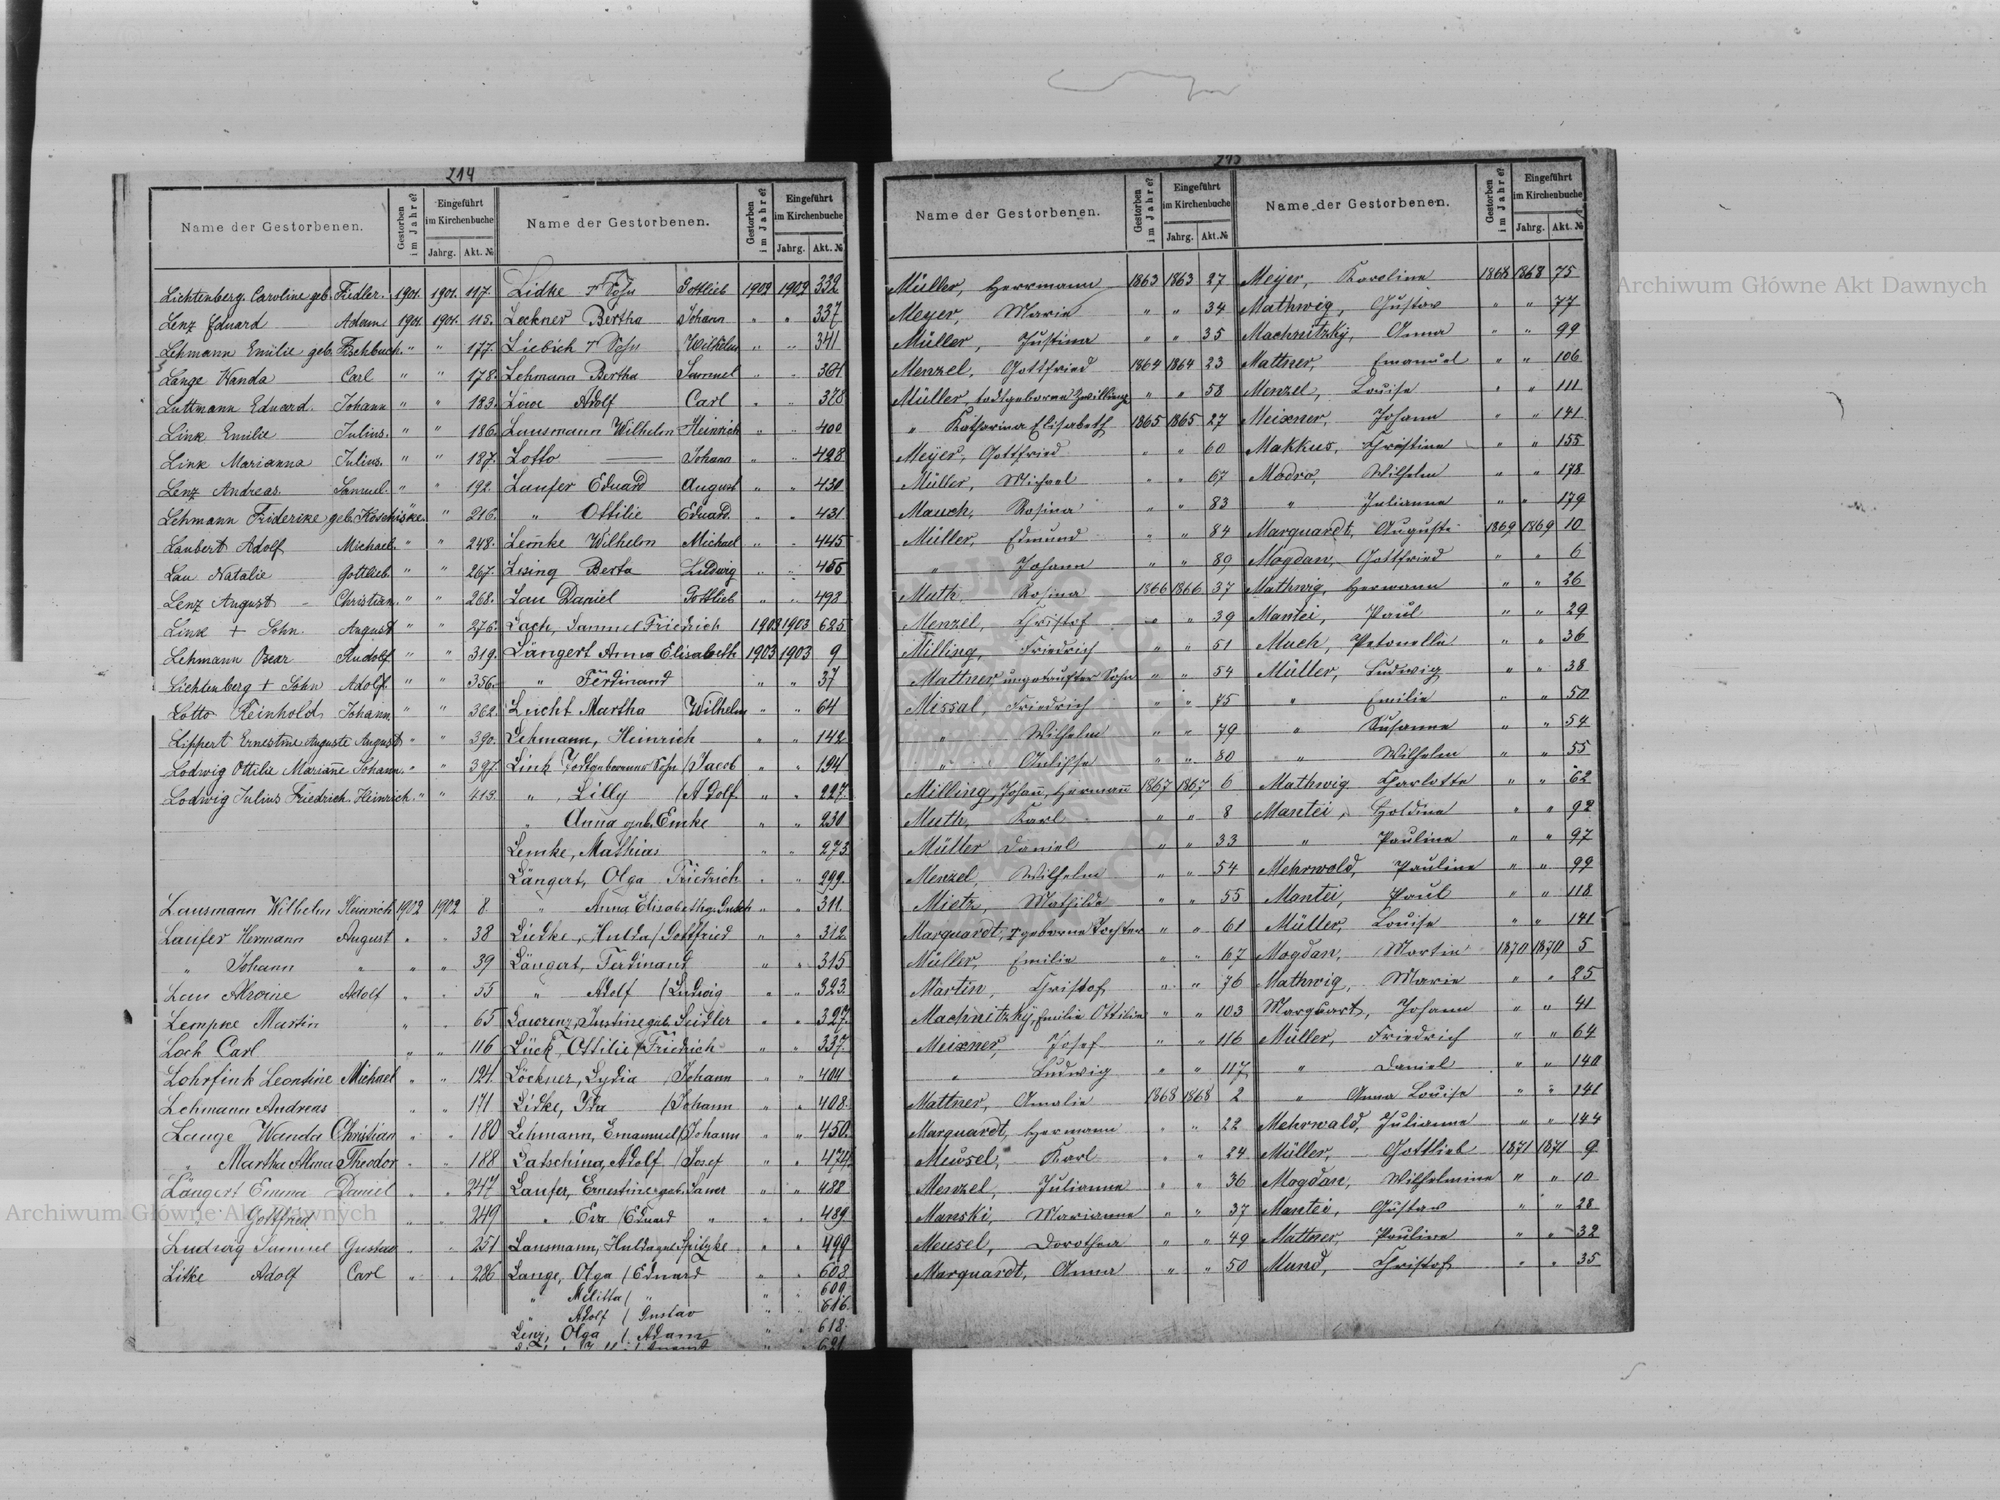 214
Name der Gestorbenen. Gestorben im Jahre? Eingeführt im Kirchenbuche Jahrg. Akt. №
Lichtenberg Caroline geb. Fidler. 1901. 1901. 117.
Lenz Eduard Adam 1901. 1901. 115.
Lehmann Emilie geb. Fischbuch. " " 177.
Lange Wanda Carl " " 178.
Luttmann Eduard. Johann " " 183.
Link Emilie Julius. " " 186.
Link Marianna Julius. " " 187.
Lenz Andreas. Samuel. " " 192.
Lehmann Friderike geb. Koschiske. " 216.
Laubert Adolf Michael. " " 248.
Lau Natalie Gottlieb. " " 267.
Lenz August Christian. " " 268.
Link + Sohn. August " " 276.
Lehmann Oscar Rudolf " " 319.
Lichtenberg + Sohn Adolf " " 356.
Lotto Reinhold Johann " " 362.
Lippert Ernestine Auguste August " " 390.
Lodwig Ottilie Marianne Johann. " " 397.
Lodwig Julius Friedrich Heinrich. " " 413.
Lausmann Wilhelm Heinrich 1902 1902 8
Laufer Hermann August " " 38
" Johann " " " 39
Lau Alwine Adolf " " 55
Lempke Martin " " 65
Loch Carl " " 116
Lohrfink Leontine Michael " " 124
Lehmann Andreas " " 171
Lange Wanda Christian " " 180
" Martha Alma Theodor " " 188
Längert Emma Daniel " " 247
" Gottfried " " 249
Ludwig Samuel Gustav " " 251
Litke Adolf Carl " " 286
Name der Gestorbenen. Gestorben im Jahre? Eingeführt im Kirchenbuche Jahrg. Akt. №
Lidke + Sohn Gottlieb 1902 1902 332
Leckner Bertha Johann " " 337
Liebich + Sohn Wilhelm " " 341
Lehmann Bertha Samuel " " 361
Löwe Adolf Carl " " 378
Lausmann Wilhelm Heinrich " " 400
Lotto — Johann " " 428
Laufer Eduard August " " 430
" Ottilie Eduard. " " 431
Lemke Wilhelm Michael " " 445
Lising Berta Ludwig " " 455
Lau Daniel Gottlieb " " 498
Lach, Samuel Friedrich 1902 1903 625
Langert Anna Elisabeth 1903 1903 9
" Ferdinand " " 37
Lucht Martha Wilhelm " " 64
Lehmann, Heinrich " " 142
Link Todtgeborener Sohn / Jacob " " 194
" Lilly / Adolf " " 227
" Anna geb. Emke " " 230
Lemke, Mathias " " 273
Längert, Olga Friedrich " " 299.
" Anna Elisabeth " " 311
Liedke, Hulda / Gottfried " " 312
Längert, Ferdinand " " 315
" Adolf / Ludwig " " 323
Lawrenz, Justine geb. Seidler " " 327
Lück, Ottilie / Friedrich " " 337
Löckner, Lydia / Johann " " 404
Lidke, Ida / Johann " " 408.
Lehmann, Emanuel / Johann " " 450.
Latsching, Adolf / Josef " " 474
Laufer, Ernestine geb. Sauer " " 488
" Eva / Eduard " " " 489
Lausmann, Hulda geb. " " 499
Lange, Olga / Eduard " " 603
" Melitta / " " " 609
" Adolf / Gustav " " 616
Lenz, Olga / Adam " " 618
" " 621
Name der Gestorbenen. Gestorben im Jahre? Eingeführt im Kirchenbuche Jahrg. Akt. №
Müller, Herrmann 1863 1863 27
Meyer, Marie " " 34
Müller, Justina " " 35
Menzel, Gottfried 1864 1864 23
Müller, todtgeborene Zwillinge " " 58
" Katharina Elisabeth 1865 1865 27
Meyer, Gottfried " " 60
Müller, Michael " " 67
Mauch, Rosina " " 83
Müller, Edmund " " 84
" Johann " " 89
Muth Rosina 1866 1866 37
Menzel, Christof " " 39
Milling, Friedrich " " 51
Mattner ungetaufter Sohn " " 54
Missal, Friedrich " " 75
" Wilhelm " " 79
" " " 80
Milling, Johann, Hermann 1867 1867 6
Muth, Karl " " 8
Müller Daniel " " 33
Menzel, Wilhelm " " 54
Mietz, Mathilde " " 55
Marquardt, + geborene Tochter " " 61
Müller, Emilie " " 67
Martin, Christof " " 76
Machnitzky, Emilie Ottilie " " 103
Meixner, Josef " " 116
" Ludwig " " 117
Mattner, Amalie 1868 1868 2
Marquardt, Hermann " " 22
Meusel, Karl " " 24
Menzel, Julianna " " 36
Manski, Marianna " " 37
Meusel, Dorothea " " 49
Marquardt, Anna " " 50
Name der Gestorbenen. Gestorben im Jahre? Eingeführt im Kirchenbuche Jahrg. Akt. №
Meyer, Karoline 1868 1868 75
Mathwig, Gustav " " 77
Machnitzky, Anna " " 99
Mattner, Emanuel " " 106
Menzel, Louise " " 111
Meixner, Johann " " 141
Makkus, Christine " " 155
Modro, Wilhelm " " 178
" Julianna " " 179
Marquardt, Auguste 1869 1869 10
Mogdan, Gottfried " " 6
Mathwig, Hermann " " 26
Mantei, Paul " " 29
Much, Petonella " " 36
Müller, Ludwig " " 38
" Emilie " " 50
" Susanna " " 54
" Wilhelm " " 55
Mathwig Charlotte " " 62
Mantei, Goldina " " 92
" Pauline " " 97
Mehrwald, Pauline " " 99
Mantei, Paul " " 118
Müller, Louise " " 141
Mogdan, Martin 1870 1870 5
Mathwig, Marie " " 25
Marquart, Johann " " 41
Müller, Friedrich " " 64
" Daniel " " 140
" Anna Louise " " 141
Mehrwald, Julianna " " 144
Müller, Gottlieb 1871 1871 9
Mogdan, Wilhelmine " " 10
Mantei, Gustav " " 28
Mattner, Pauline " " 32
Mund, Christof " " 35
Archiwum Główne Akt Dawnych
Archiwum Główne Akt Dawnych